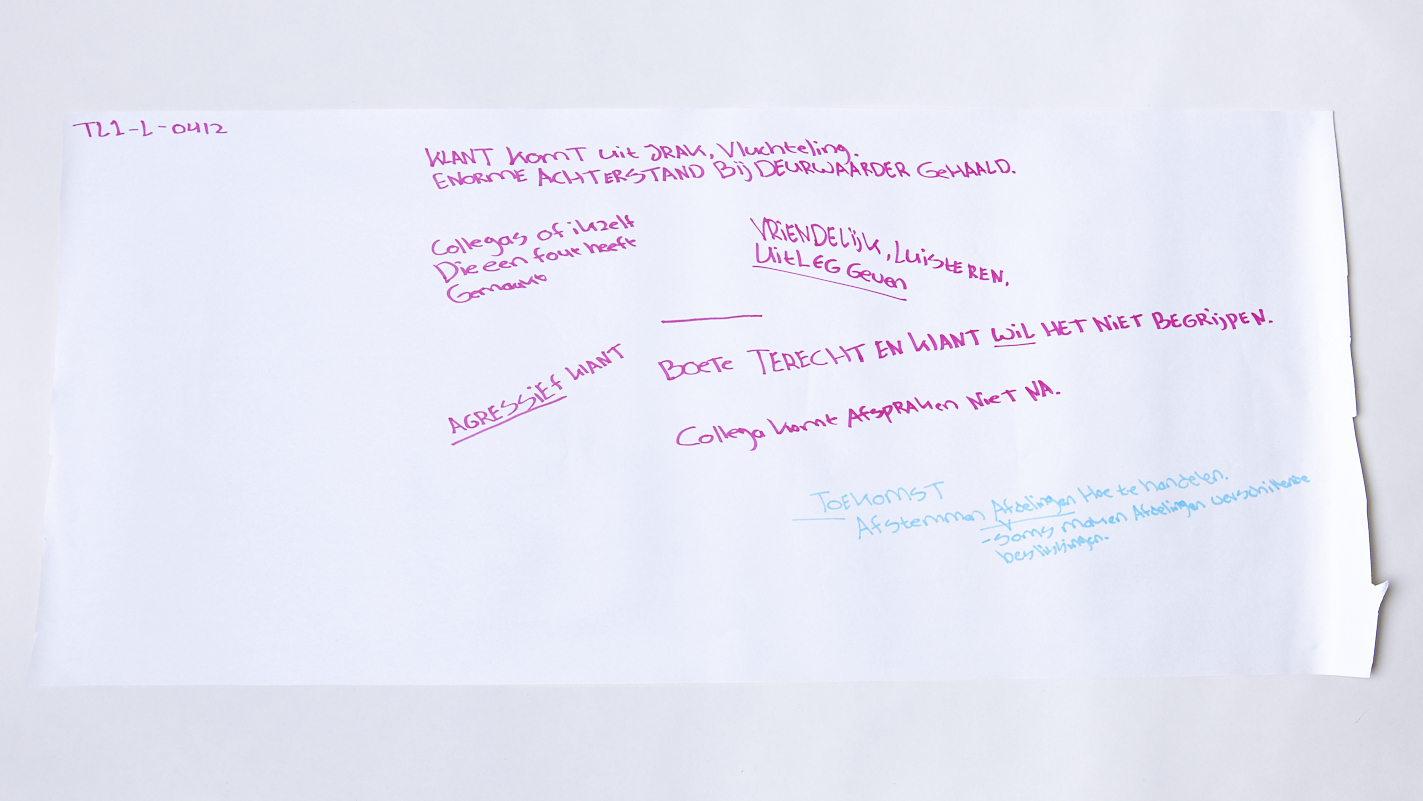 TL1-L-0412
KLANT Komt uit IRAK, Vluchteling.
ENORME ACHTERSTAND Bij DEURWAARDER GEHAALD.
Collegas of ikzelf
Die een fout heeft
Gemaakt
VRIENDELijk, LuisTEREN,
UitLEG GEVEN
AGRESSIEF KLANT
BOETE TERECHT EN KLANT WIL HET NIET BEGRIJPEN.
Collega komt AFSPRAKEN NIET NA.
TOEKOMST
Afstemmen Afdelingen Hoe te handelen.
-Soms maken Afdelingen verschillende
beslissingen.